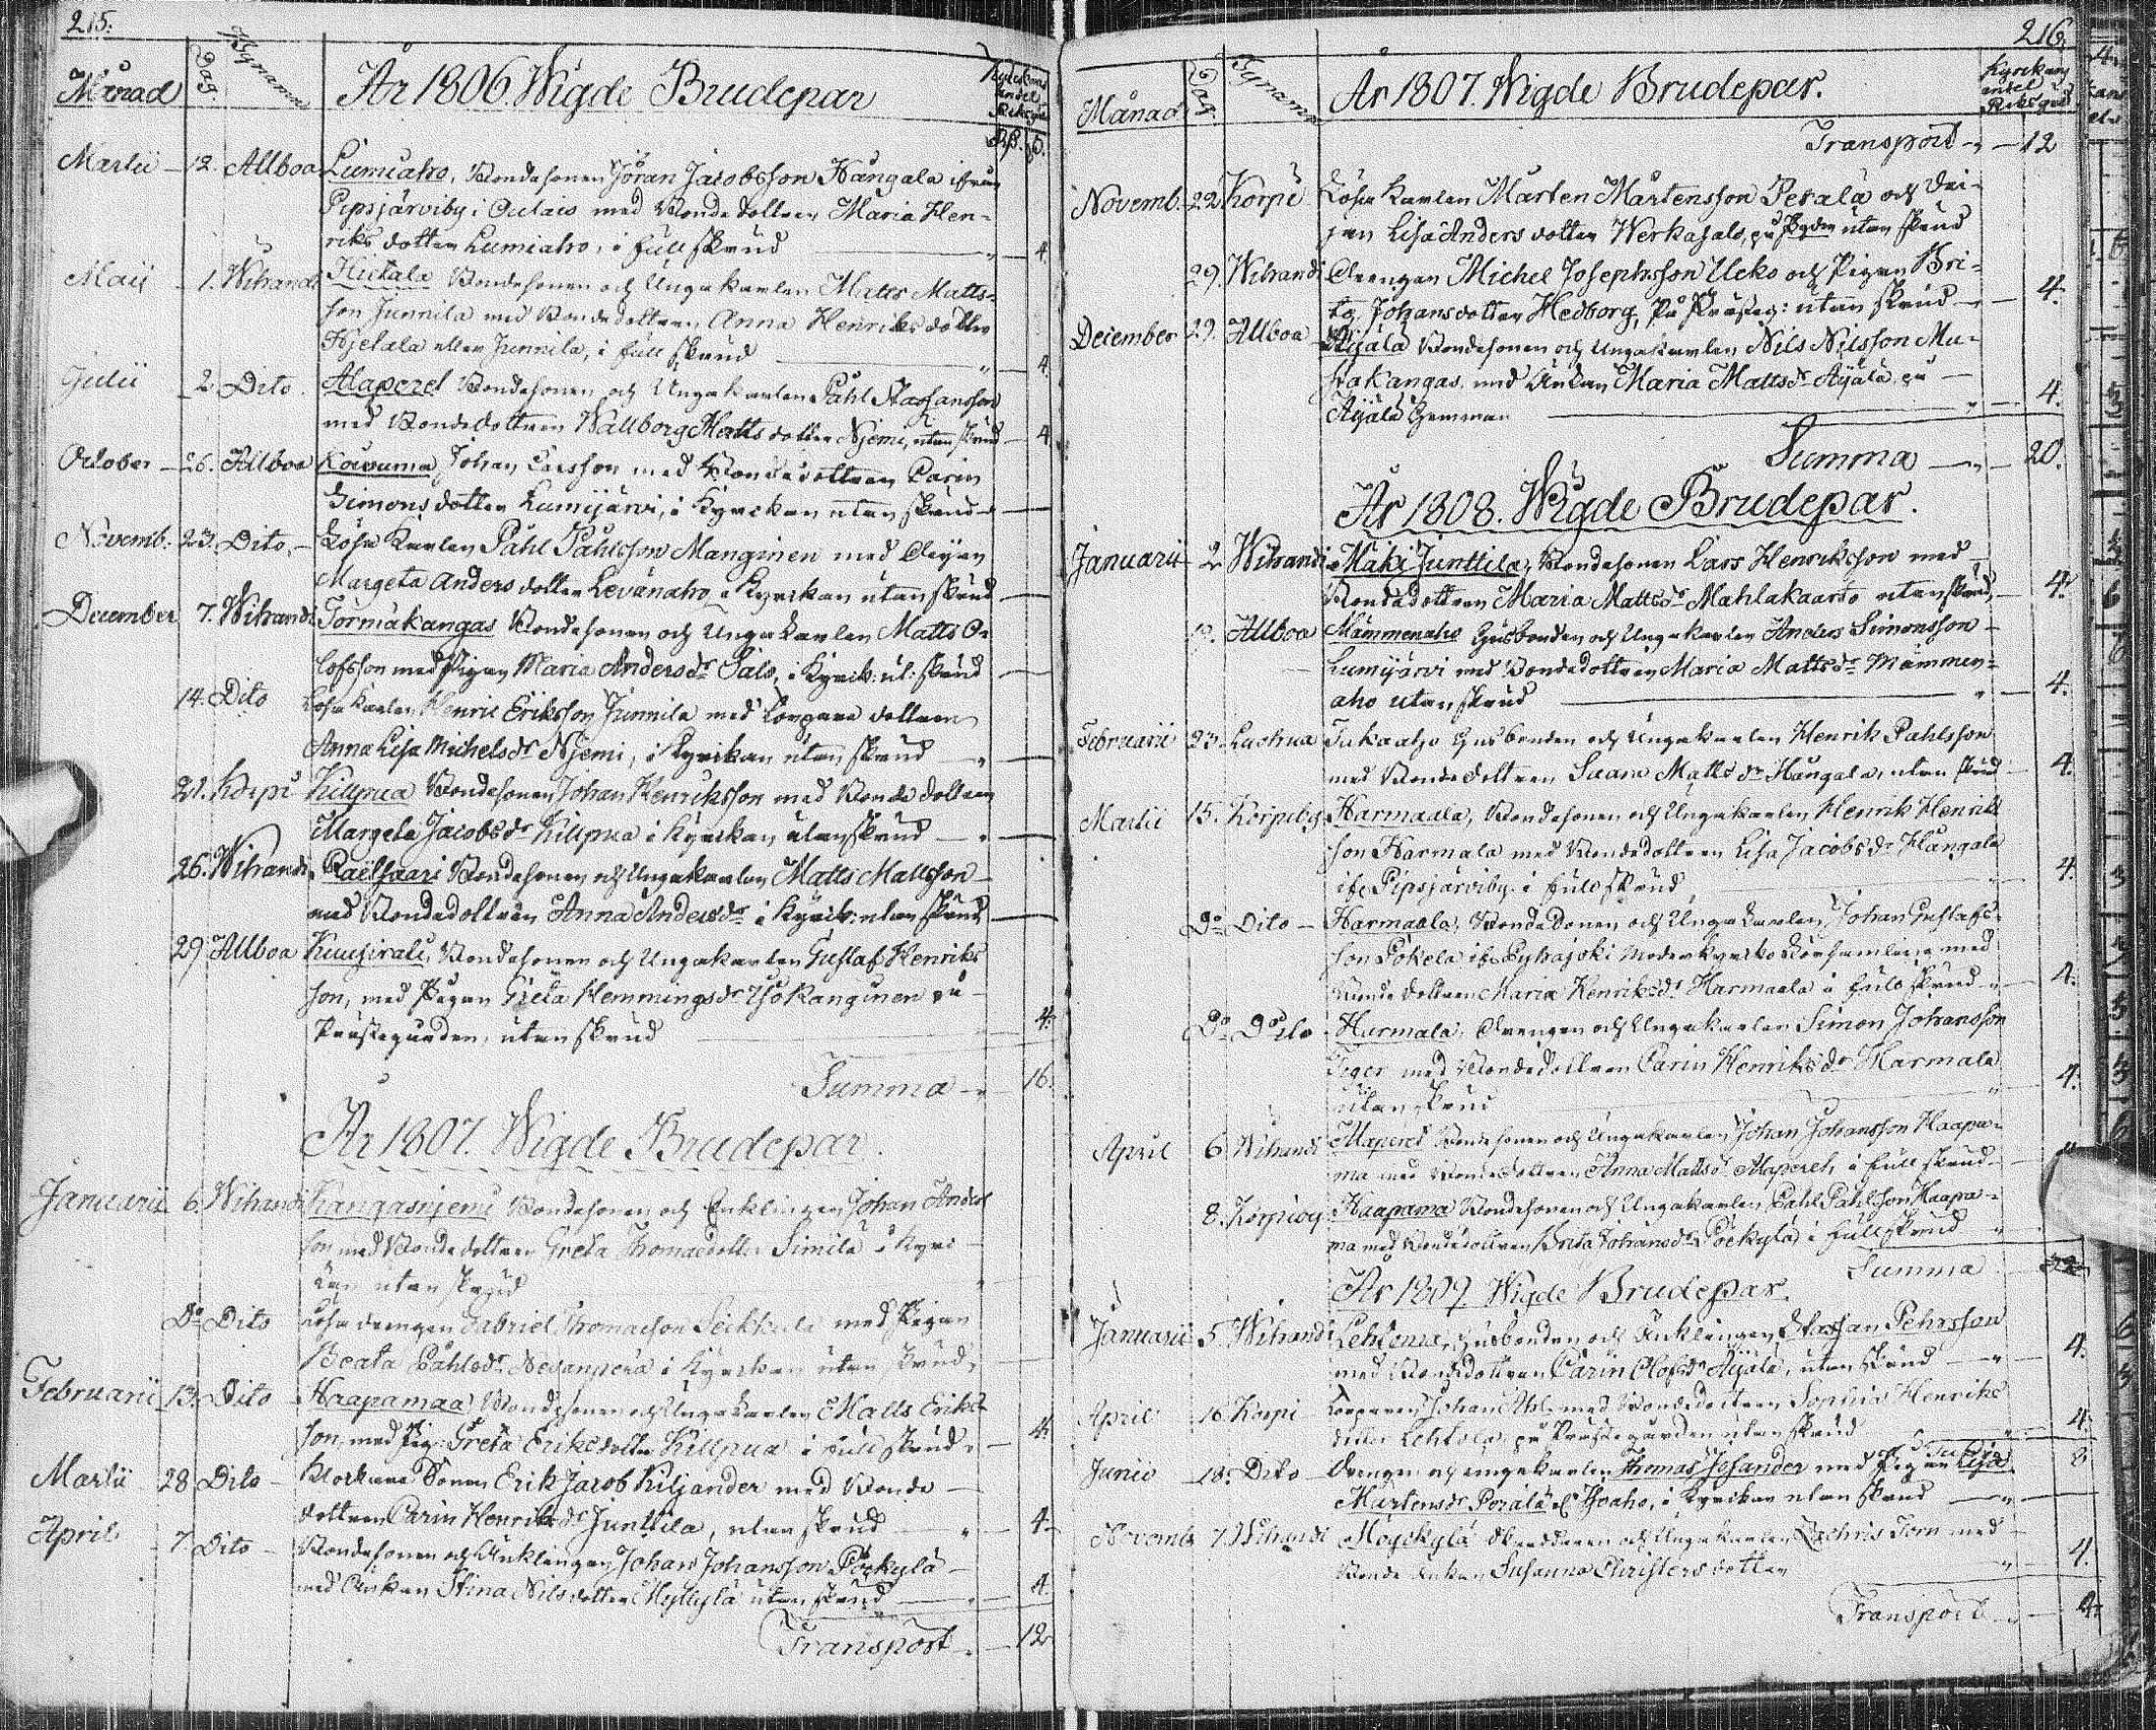 215.
Månad Dag. Bynamn År 1806. Wigde Brudepar
Rß. ß.
Martii – 12. Allboa Lumiaho, Bondesonen Jöran Jacobsson Hangala ifrån
Pipsjärviby i Oulais med Bonde dottren Maria Hen-
riks dotter Lumiaho, i full skrud 4
Maij 1. Wihandi Hietala Bondesonen och Ungakarlen Matts Matts-
son Junnila med Bondedottren Anna Henriks dotter
Hjetala eller Junnila, i full skrud 4.
Julii 2. Dito. Alaperet Bondesonen och Ungakarlen Påhl Staffansson
med Bondedottren Wallborg Matts dotter Njemi, utan skrud 4
October – 26. Allboa Kowuma, Johan Larsson med Bondedottren Carin
Simons dotter Lumijärvi, i Kyrckan utan skrud
Novemb. 23. Dito, – Lösa Karlen Påhl Påhlsson Manginen med Pigan
Margeta Anders dotter Levänaho, i Kyrckan utan skrud
December 7. Wihandi Törmäkangas Bondesonen och Ungakarlen Matts O-
lofsson med Pigan Maria Andersdr Salo, i Kyrck: ut: skrud
14. Dito Lösa Karlen Henric Eriksson Junnila med Torpare dottren
Anna Lisa Michelsdr Njemi, i Kyrckan utan skrud
21. Korpi Killpua Bondesonen Johan Henriksson med Bonde dottren
Margeta Jacobsdr Killpua i Kyrckan utan skrud
26. Wihandi Raelsaari Bondesonen och Ungakarlen Matts Mattsson
med Bondedottren Anna Andersdr i Kyrck: utan skrud
29 Allboa Kuusirati, Bondesonen och Ungakarlen Gustaf Henriks
son, med Pigan Greta Hemmingsdr Isokanginen på
Prästegården, utan skrud 4.
Summa 16.
År 1807. Wigde Brudepar.
Januarii 6. Wihandi Kangasnjemi Bondesonen och Enklingen Johan Anders
son med Bondedottren Greta Thomaedotter Simila i Kyrc-
kan utan skrud
Do Dito Lösa drengen Gabriel Thomaeson Seikkula med Pigan
Beata Påhlsdr i Kyrckan utan skrud,
Februarii 13. Dito Haapamaa Bondesonen och Ungakarlen Matts Eriks
son, med Pig: Greta Eriksdotter Killpua i full skrud 4.
Martii 28 Dito – Klockare Sonen Erik Jacob Kiljander med Bonde
dottren Carin Henriksdr Junttila, utan skrud 4.
April 7 Dito – Bondesonen och Änklingen Johan Johansson Pöckylä
med Änkan Stina Nilsdotter Myllylä utan skrud 4.
Transport 12
216.
Månad Dag Bynamn År 1807. Wigde Brudepar. Kyrckans andel Riksgäld
Transport 12
Novemb. 22 Korpi Lösa Karlen Mårten Mårtensson Perälä och Pi-
gan Lisa Anders dotter Werkasalo, utan skrud
29. Wihandi Drengen Michel Josephsson Ucko och Pigan Bri-
ta Johansdotter Hedborg, På Prästeg: utan skrud 4.
December 29. Allboa Äijälä Bondesonen och Ungakarlen Nils Nilsson Mu-
stakangas med Änkan Maria Mattsdr Äijälä, på
Äijälä Hemman 4.
Summa 20.
År 1808. Wigde Brudepar.
Januarii 2 Wihandi Mäki Junttila, Bondesonen Lars Henriksson med
Bondedottren Maria Mattsdr Mahlakaarto utan skrud, 4.
Allboa Mämmenaho Husbonden och Ungakarlen Anders Simonsson
Lumijärvi med Bondedottren Maria Mattsdr Mämmen-
aho utan skrud 4.
Februarii 23. Lashua Tukaaho Husbonden och Ungakarlen Henrik Pahlsson
med Bondedottren Saara Matts dr Hangala, utan skrud 4.
Martii 15. Korpiby Harmaala, Bondesonen och Ungakarlen Henrik Henriks
son Harmala med Bondedottren Lisa Jacobsdr Hangala
ifr Pipsjärviby i full skrud 4.
Do Dito – Harmaala, Bondesonen och Ungakarlen Johan Gustafs-
son Pokela ifr Pyhäjoki Moderkyrcko Församling med
Bonde dottren Maria Henriksdr Harmaala i full skrud 4.
Do Dito Harmala, Drengen och Ungakarlen Simon Johansson
Teger med Bondedottren Carin Henriksdr Harmala
utan skrud 4.
April 6 Wihandi Alaperet Bondesonen och Ungakarlen Johan Johansson Haapa-
ma med Bondedottren Anna Mattsdr Alaperet, i full skrud
8. Korpiby Haapama Bondesonen och Ungakarlen Påhl Påhlsson Haapa-
ma med Bondedottren Brita Johansdr Pöckylä, i full skrud
Summa 32
År 1809. Wigde Brudepar.
Januarii 5. Wihandi Lehtema, Husbonden och Änklingen Staffan Pehrsson
med Bondedottren Carin Olofsdr Äijälä, utan skrud 4.
April 16 Korpi – Torparen Johan med Bondedottren Sophia Henriks
dotter Lehtola, på Prästegården utan skrud 4.
Junii 18. Dito – Drengen och ungakarlen Thomas Josander med Pigan Lisa 8
Mårtensdr Perälä i Kyrckan utan skrud
Novemb 7. Wihandi Möyckylä och Ungakarlen Zachris Torn med
Bonde Enkan Susanna Christers dotter 4.
Transport